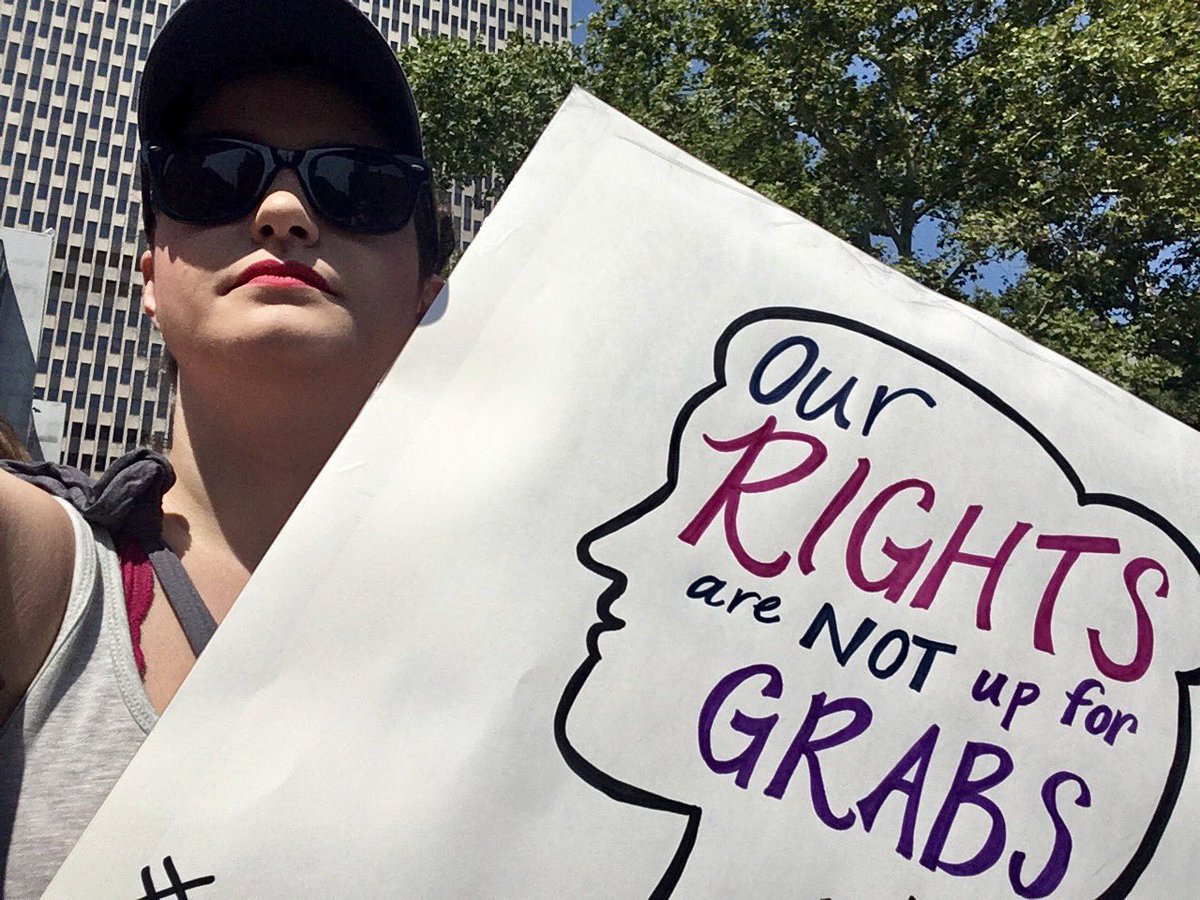 Our
RIGHTS
are NOT up for
GRABS
#